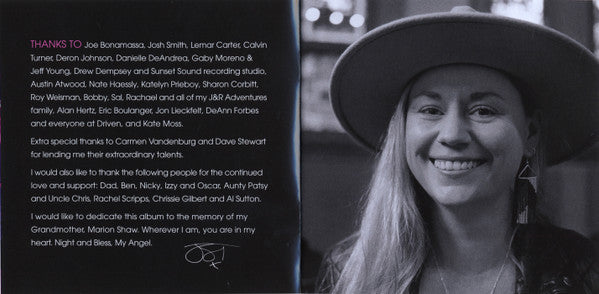 THANKS TO Joe Bonamassa, Josh Smith, Lemar Carter, Calvin
Turner, Deron Johnson, Danielle DeAndrea, Gaby Moreno &
Jeff Young, Drew Dempsey and Sunset Sound recording studio,
Austin Atwood, Nate Haessly, Katelyn Prieboy, Sharon Corbitt,
Roy Weisman, Bobby, Sal, Rachael and all of my J&R Adventures
family, Alan Hertz, Eric Boulanger, Jon Lieckfelt, DeAnn Forbes
and everyone at Driven, and Kate Moss.
Extra special thanks to Carmen Vandenburg and Dave Stewart
for lending me their extraordinary talents.
I would also like to thank the following people for the continued
love and support: Dad, Ben, Nicky, Izzy and Oscar, Aunty Patsy
and Uncle Chris, Rachel Scripps, Chrissie Gilbert and Al Sutton.
I would like to dedicate this album to the memory of my
Grandmother, Marion Shaw. Wherever I am, you are in my
heart. Night and Bless, My Angel.